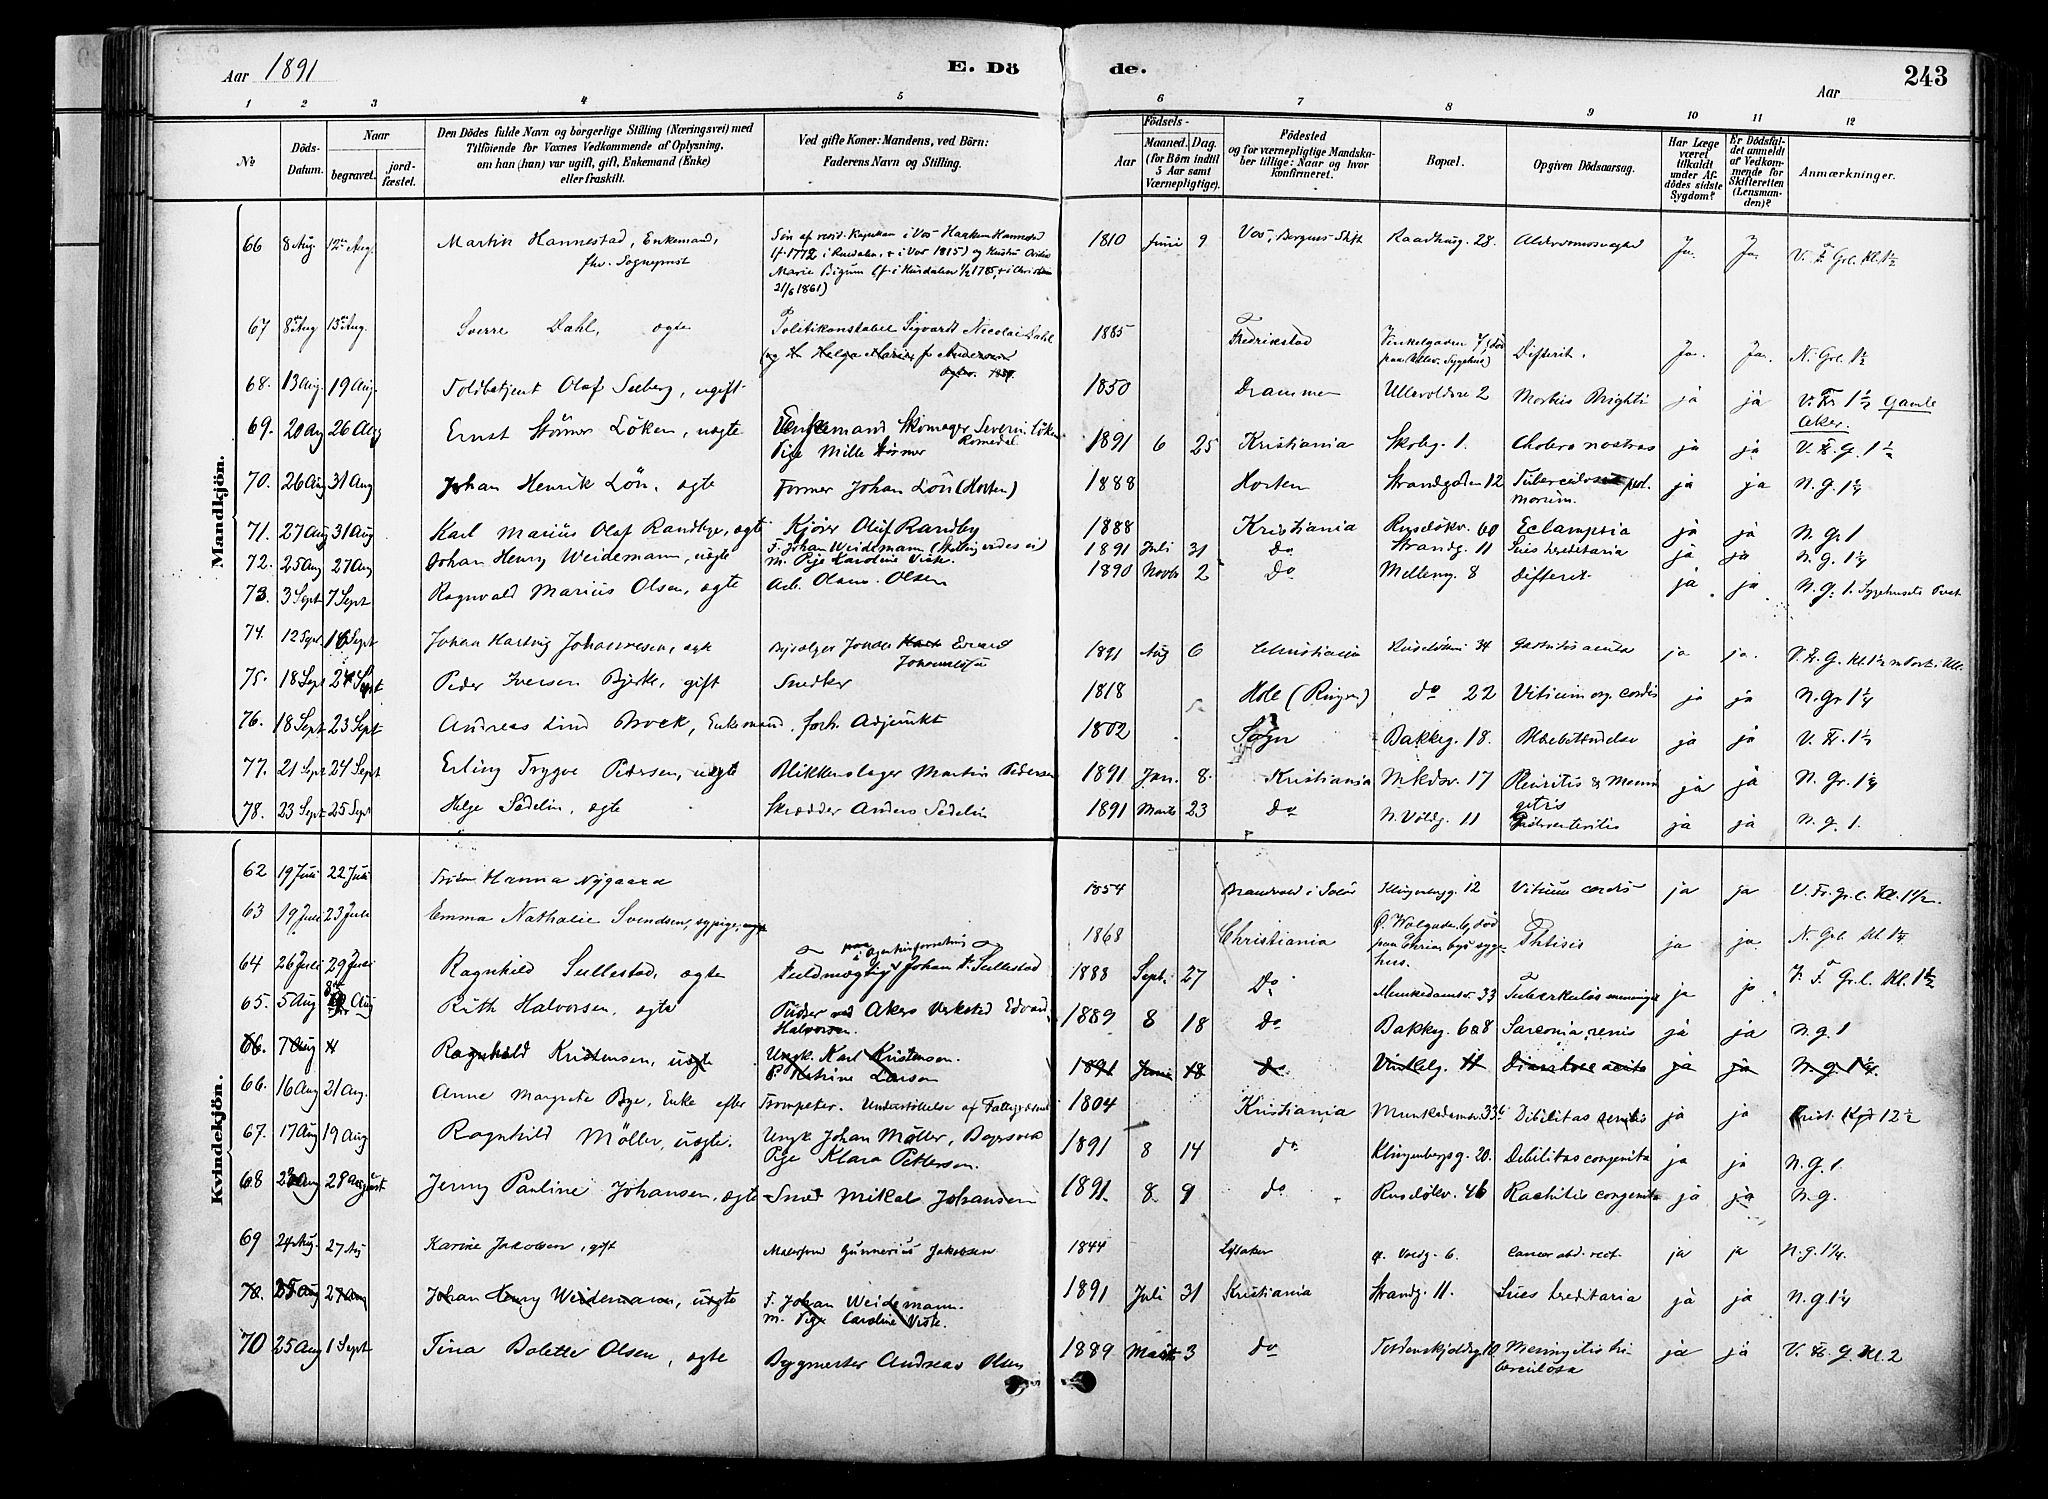 Aar 1891
E. Dö
de.
Aar
243
1 2 3 4 5 6 7 8 9 10 11 12
No
Döds-Datum.
Naar
begravet.
jord-fæstet.
Den Dödes fulde Navn og borgerlige Stilling (Næringsvei) med
Tilföiende for Voxnes Vedkommende af Oplysning,
om han (han) var ugift, gift, Enkemand (Enke)
eller fraskilt.
Ved gifte Koner: Mandens, ved Börn:
Faderens Navn og Stilling.
Födsels-
Aar
Maaned. Dag.
(for Börn indtil
5 Aar samt
Værnepligtige).
Födested
og for værnepligtige Mandska-
ber tillige: Naar og hvor
konfirmeret.
Bopæl.
Opgiven Dödsaarsag.
Har Læge
været
tilkaldt
under Af-
dödes sidste
Sygdom?
Er Dödsfal-
det anmeldt
af Vedkom-
mende for
Skifteretten
(Lensman-
den)?
Anmærkninger.
Mandkjön.
66 8 Aug. 12te Aug. Martin Hannestad, Enkemand, Sön af resid. Kapellan i Vos Haaken Hannestad 1810 Juni 9 Vos, Bergens Stift Raadhusg. 28. Alderdomssvaghed Ja. Ja.
fhv. Sogneprest
Marie Bigum
21/6 1861)
67 8de Aug 13de Aug. Sverre Dahl, ægte Politikonstabel Sigvardt Nicolai Dahl 1885 Fredrikstad Vinkelgaden 7, död Difterit. Ja. Ja. N. Grl. 1½
paa Ullev. Sygehus)
68. 13 Aug. 19 Aug. Toldbetjent Olaf Seeberg, ugift 1850 Drammen Ullevoldsv 2 Morbus Brighti ja ja V. Fr 1½ Gamle
Aker.
69. 20 Aug 26 Aug Ernst Störmer Löken, uægte Enkemand Skomager Severin Löken 1891 6 25 Kristiania Skoleg. 1. Cholera nostras ja ja V. Fr. G. 1½
Romedal
Pige Mille Störmer
70. 26 Aug 31 Aug Johan Henrik Lön, ægte Former Johan Lön (Horten) 1888 Horten Strandgaden 12 ja ja N. G. 1¼
71. 27 Aug 31 Aug Karl Marius Olaf Randbye, ægte Kjörer Oluf Randby 1888 Kristiania Ruselökv. 60 Eclampsia ja ja N. Gr 1
72. 25 Aug 27 Aug Johan Henry Weidemann, uægte F. Johan Weidemann (Stilling vides ei) 1891 Juli 31 Do Strandg. 11 Lues hereditaria ja ja N. G. 1¼
M. Pige Karoline Viste.
73. 3 Sept 7 Sept Ragnvald Marius Olsen, ægte Arb. Olsen 1890 Novbr 2 Do Mellemg. 8 Difterit ja ja N. G. 1. Sygehusets Prest
74. 12 Sept 16 Sept Johan Hartvig Johannesen, ægte 1891 Aug 6 Christiania 34 Gastritis acuta ja ja
Johannesen
75. 18 Sept 24 Sept Peder Iversen Bjerke, gift Snedker 1818 Hole (Ringer.) do 22 Vitium org. cordis ja ja N. Gr 1¼
76. 18 Sept 23 Sept Andreas Lind Brock, Enkemand. forh. Adjunkt 1802 Sogn Bakkeg. 18. ja ja V. Fr. 1½
77. 21 Sept 24 Sept Erling Trygve Pedersen, uægte Blikkenslager Martin Pedersen 1891 Jan. 8. Kristiania Mkdsv. 17 Pleuritis & Menin ja ja N. Gr. 1¼
gitis
78. 23 Sept 25 Sept Helge Sedelin, ægte Skrædder Anders Sedelin 1891 Marts 23 Do N. Voldg. 11 ja ja N. G. 1.
Kvindekjön.
62 19 Juli 22 Juli Hanna Nygaard 1854 Brandvold i Solör Klingenbgg. 12 Vitium cordis ja ja V. Fr. Gr. l. Kl. 1½.
63 19 Juli 23 Juli Emma Nathalie Svendsen, sypige, 1868 Christiania Ö. Voldgade 6, död Phtisis ja ja N. Grl. Kl. 1¼
paa Chria. bys syge-
hus.
64 26 Juli 29 Juli Ragnhild Sullestad, ægte Fuldmægtig Johan F. Sullestad 1888 Sept. 27 Do. Munkedamsv. 33 Tuberkulös meningit ja ja V. F Gr. l. Kl. 1½
65. 5 Aug Aug Ruth Halvorsen, ægte Pudser ved Akers Verksted Edvard 1889 8 18 Do Bakkeg. 6 & 8 Sarcoma renis ja ja N. G. 1
Halvorsen.
66. 7 Aug Ragnhild Kristensen, uægte Ungk. Karl Kristensen. 1891 Juni 18 do Vinkelg. 11 Diarrhoe acuta ja ja N. G. 1¼.
P. Katrine Larsen
66. 16 Aug 21 Aug. Anne Margrete Bye, Enke efter Trompeter. Understöttelse af Fattigvæsenet 1804 Kristiania Munkedamsv. 33 Debilitas senilis ja ja Krist. Kgd 12½
67. 17 Aug 19 Aug Ragnhild Möller, uægte. Ungk Johan Möller, Bagersvend 1891 8 14 do Klingenbergg. 20. Debilitas congenita ja ja N. G. 1.
Pige Klara Pettersen.
68 23 Aug 28 August Jenny Pauline Johansen, ægte Smed Mikal Johansen 1891. 8 9 do Ruselökv. 46 Rachitis congenita ja ja N. G.
69 24 Aug. 27 Aug Karine Jakobsen, gift Gunnerius Jakobsen 1844 Lysaker Ö. Voldg. 6. Cancer rect. ja ja N. G. 1¼.
70. 25 Aug 27 Aug Johan Henry Weidemann, uægte F. Johan Weidemann. 1891 Juli 31 Kristiania Strandg. 11. Lues hereditaria ja ja N. G 1¼
M. Pige Caroline Viste.
70 25 Aug 1 Sept Tina Bolette Olsen, ægte Bygmester Andreas Olsen 1889 Marts 3 do Tordenskjoldsg 10 Meningitis tu- ja ja V. Fr. G. Kl. 2
berculosa